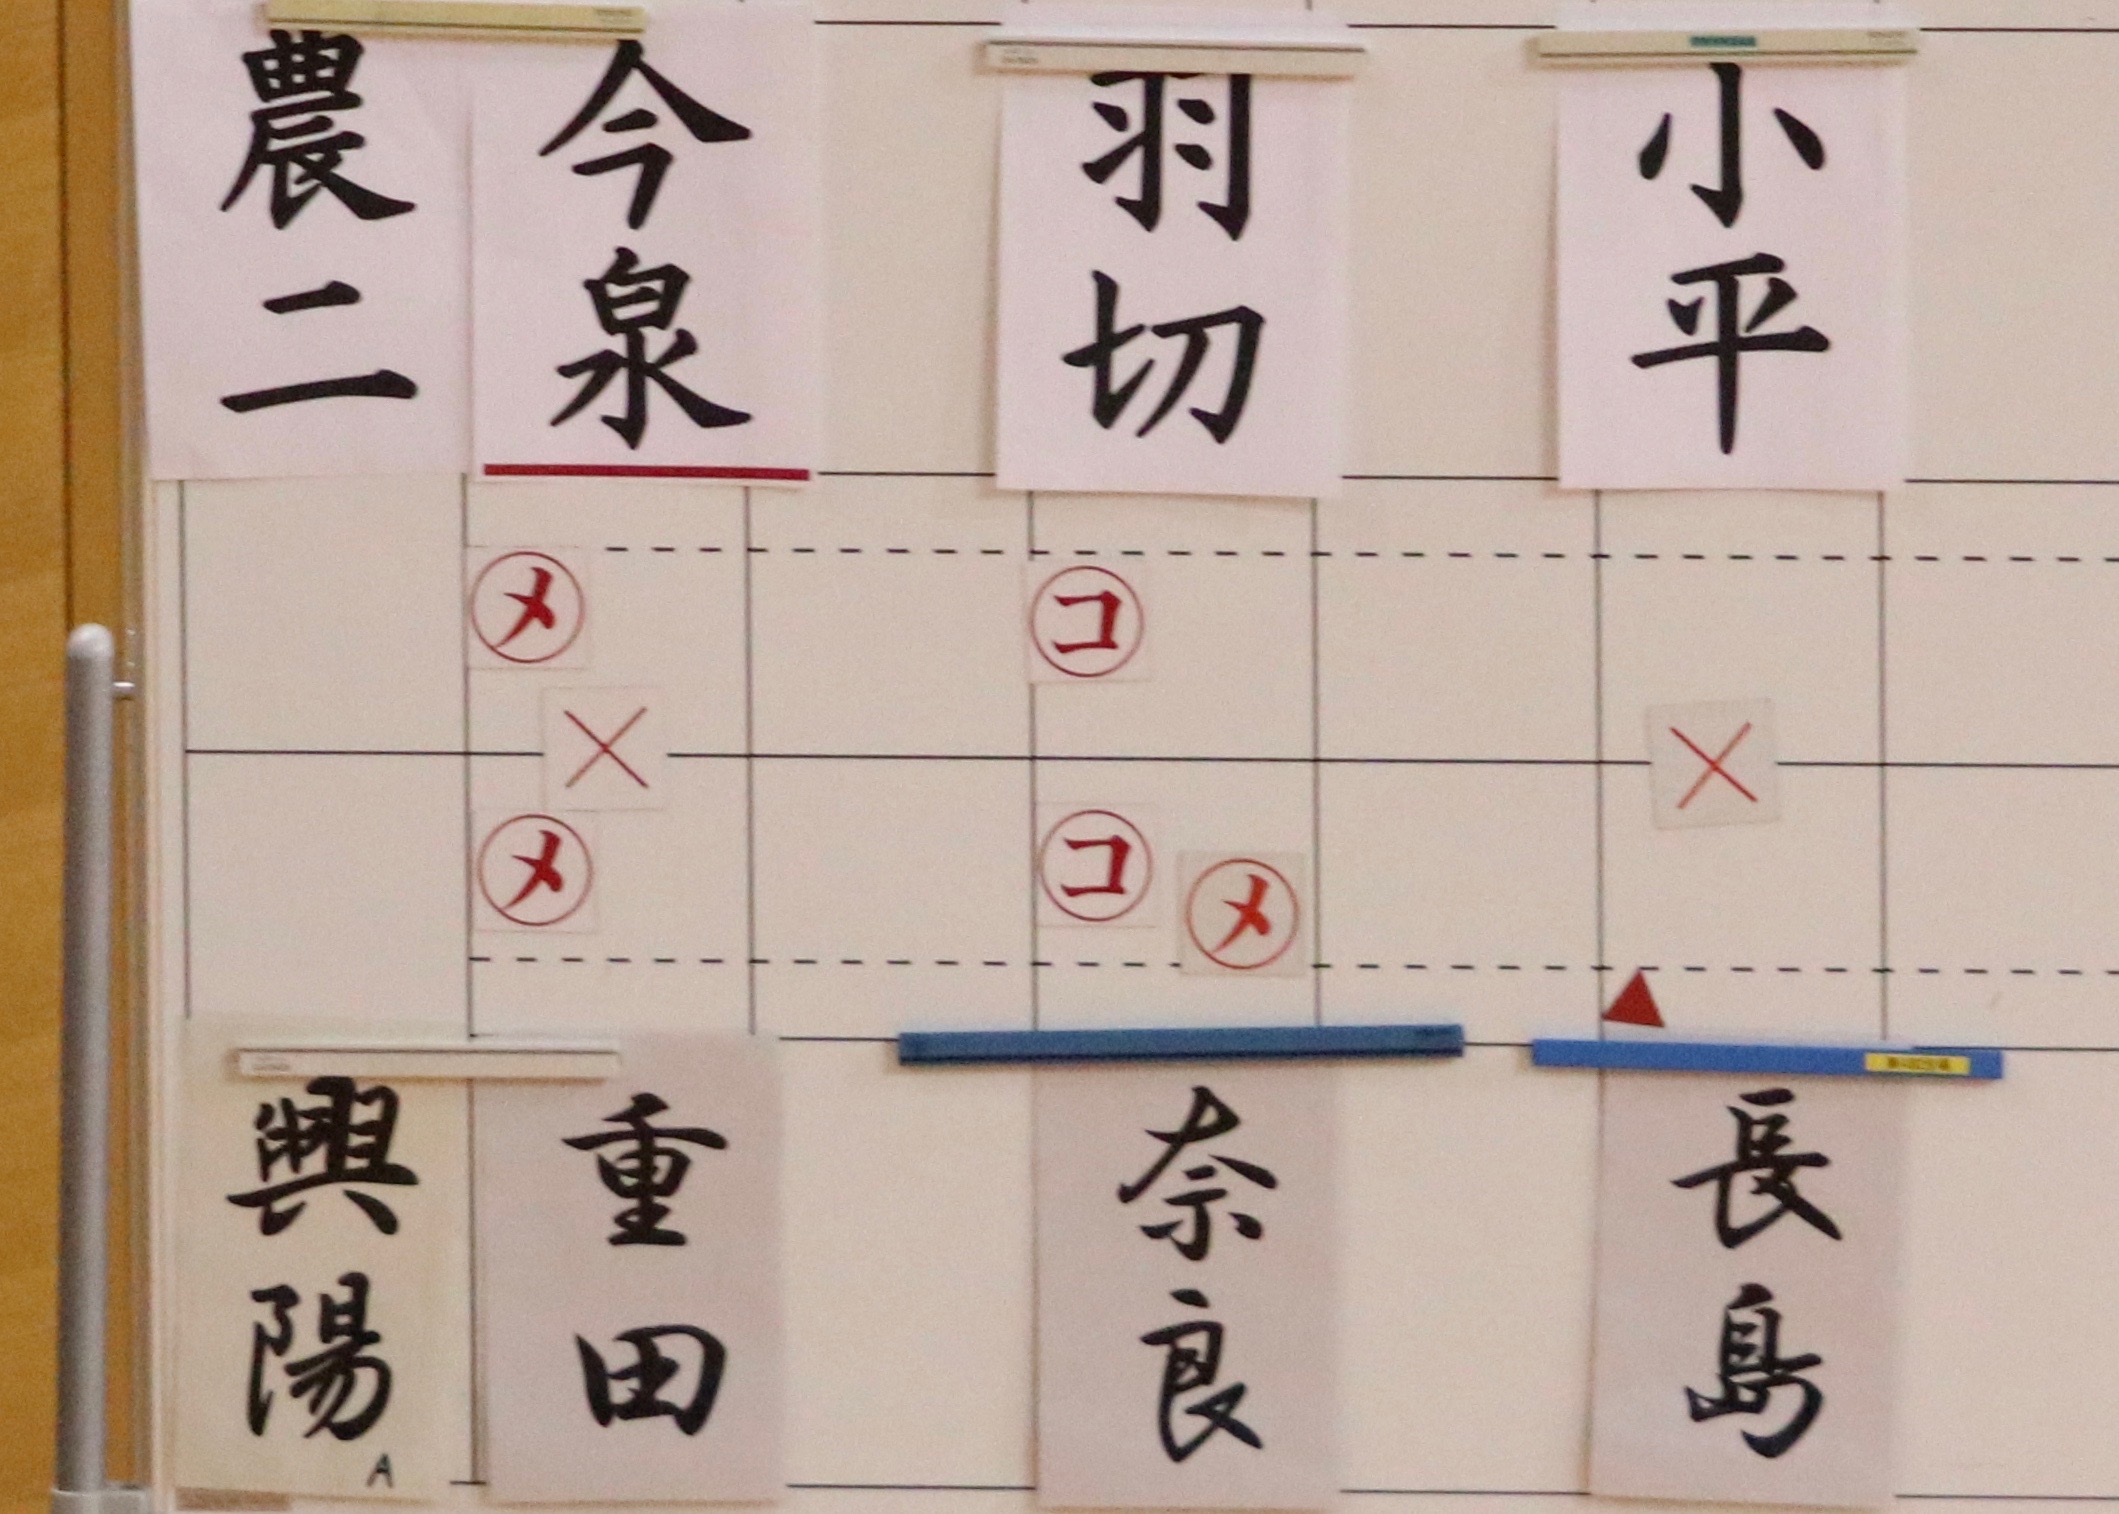 農二
今泉
羽切
小平
メ
コ
×
×
メ
コ
メ
興陽
A
重田
奈良
長島